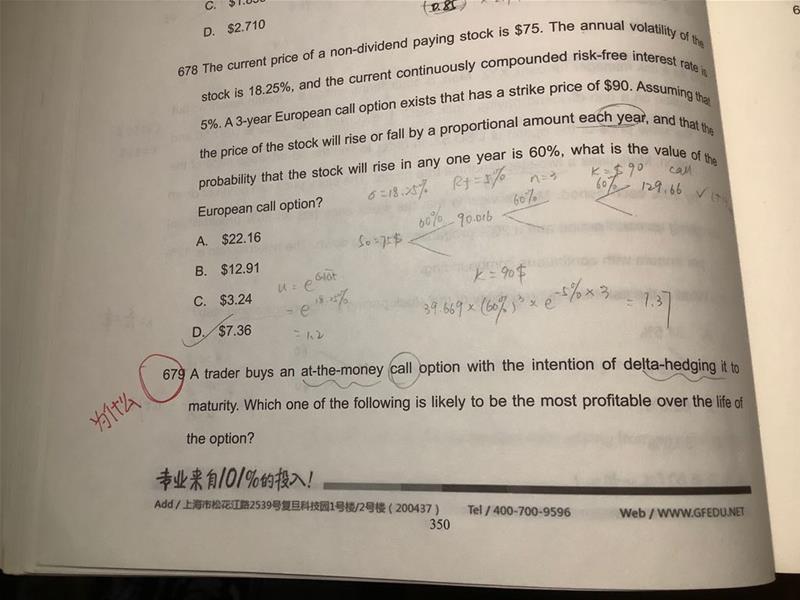 D. $2.710
678 The current price of a non-dividend paying stock is $75. The annual volatility of the
stock is 18.25%, and the current continuously compounded risk-free interest rate is
5%. A 3-year European call option exists that has a strike price of $90. Assuming that
the price of the stock will rise or fall by a proportional amount each year, and that the
probability that the stock will rise in any one year is 60%, what is the value of the
European call option?
σ=18.25% Rf=5% n=3 K=$90 call
60% 129.66
60%
60% 90.016
S0=75$
A. $22.16
B. $12.91
K=90$
C. $3.24
= e^18.25%
39.669×(60%)^3 × e^-5%×3 = 7.37
D. $7.36
=1.2
679 A trader buys an at-the-money call option with the intention of delta-hedging it to
maturity. Which one of the following is likely to be the most profitable over the life of
the option?
为什么
专业来自101%的投入!
Add / 上海市松花江路2539号复旦科技园1号楼/2号楼（200437） Tel / 400-700-9596 Web / WWW.GFEDU.NET
350